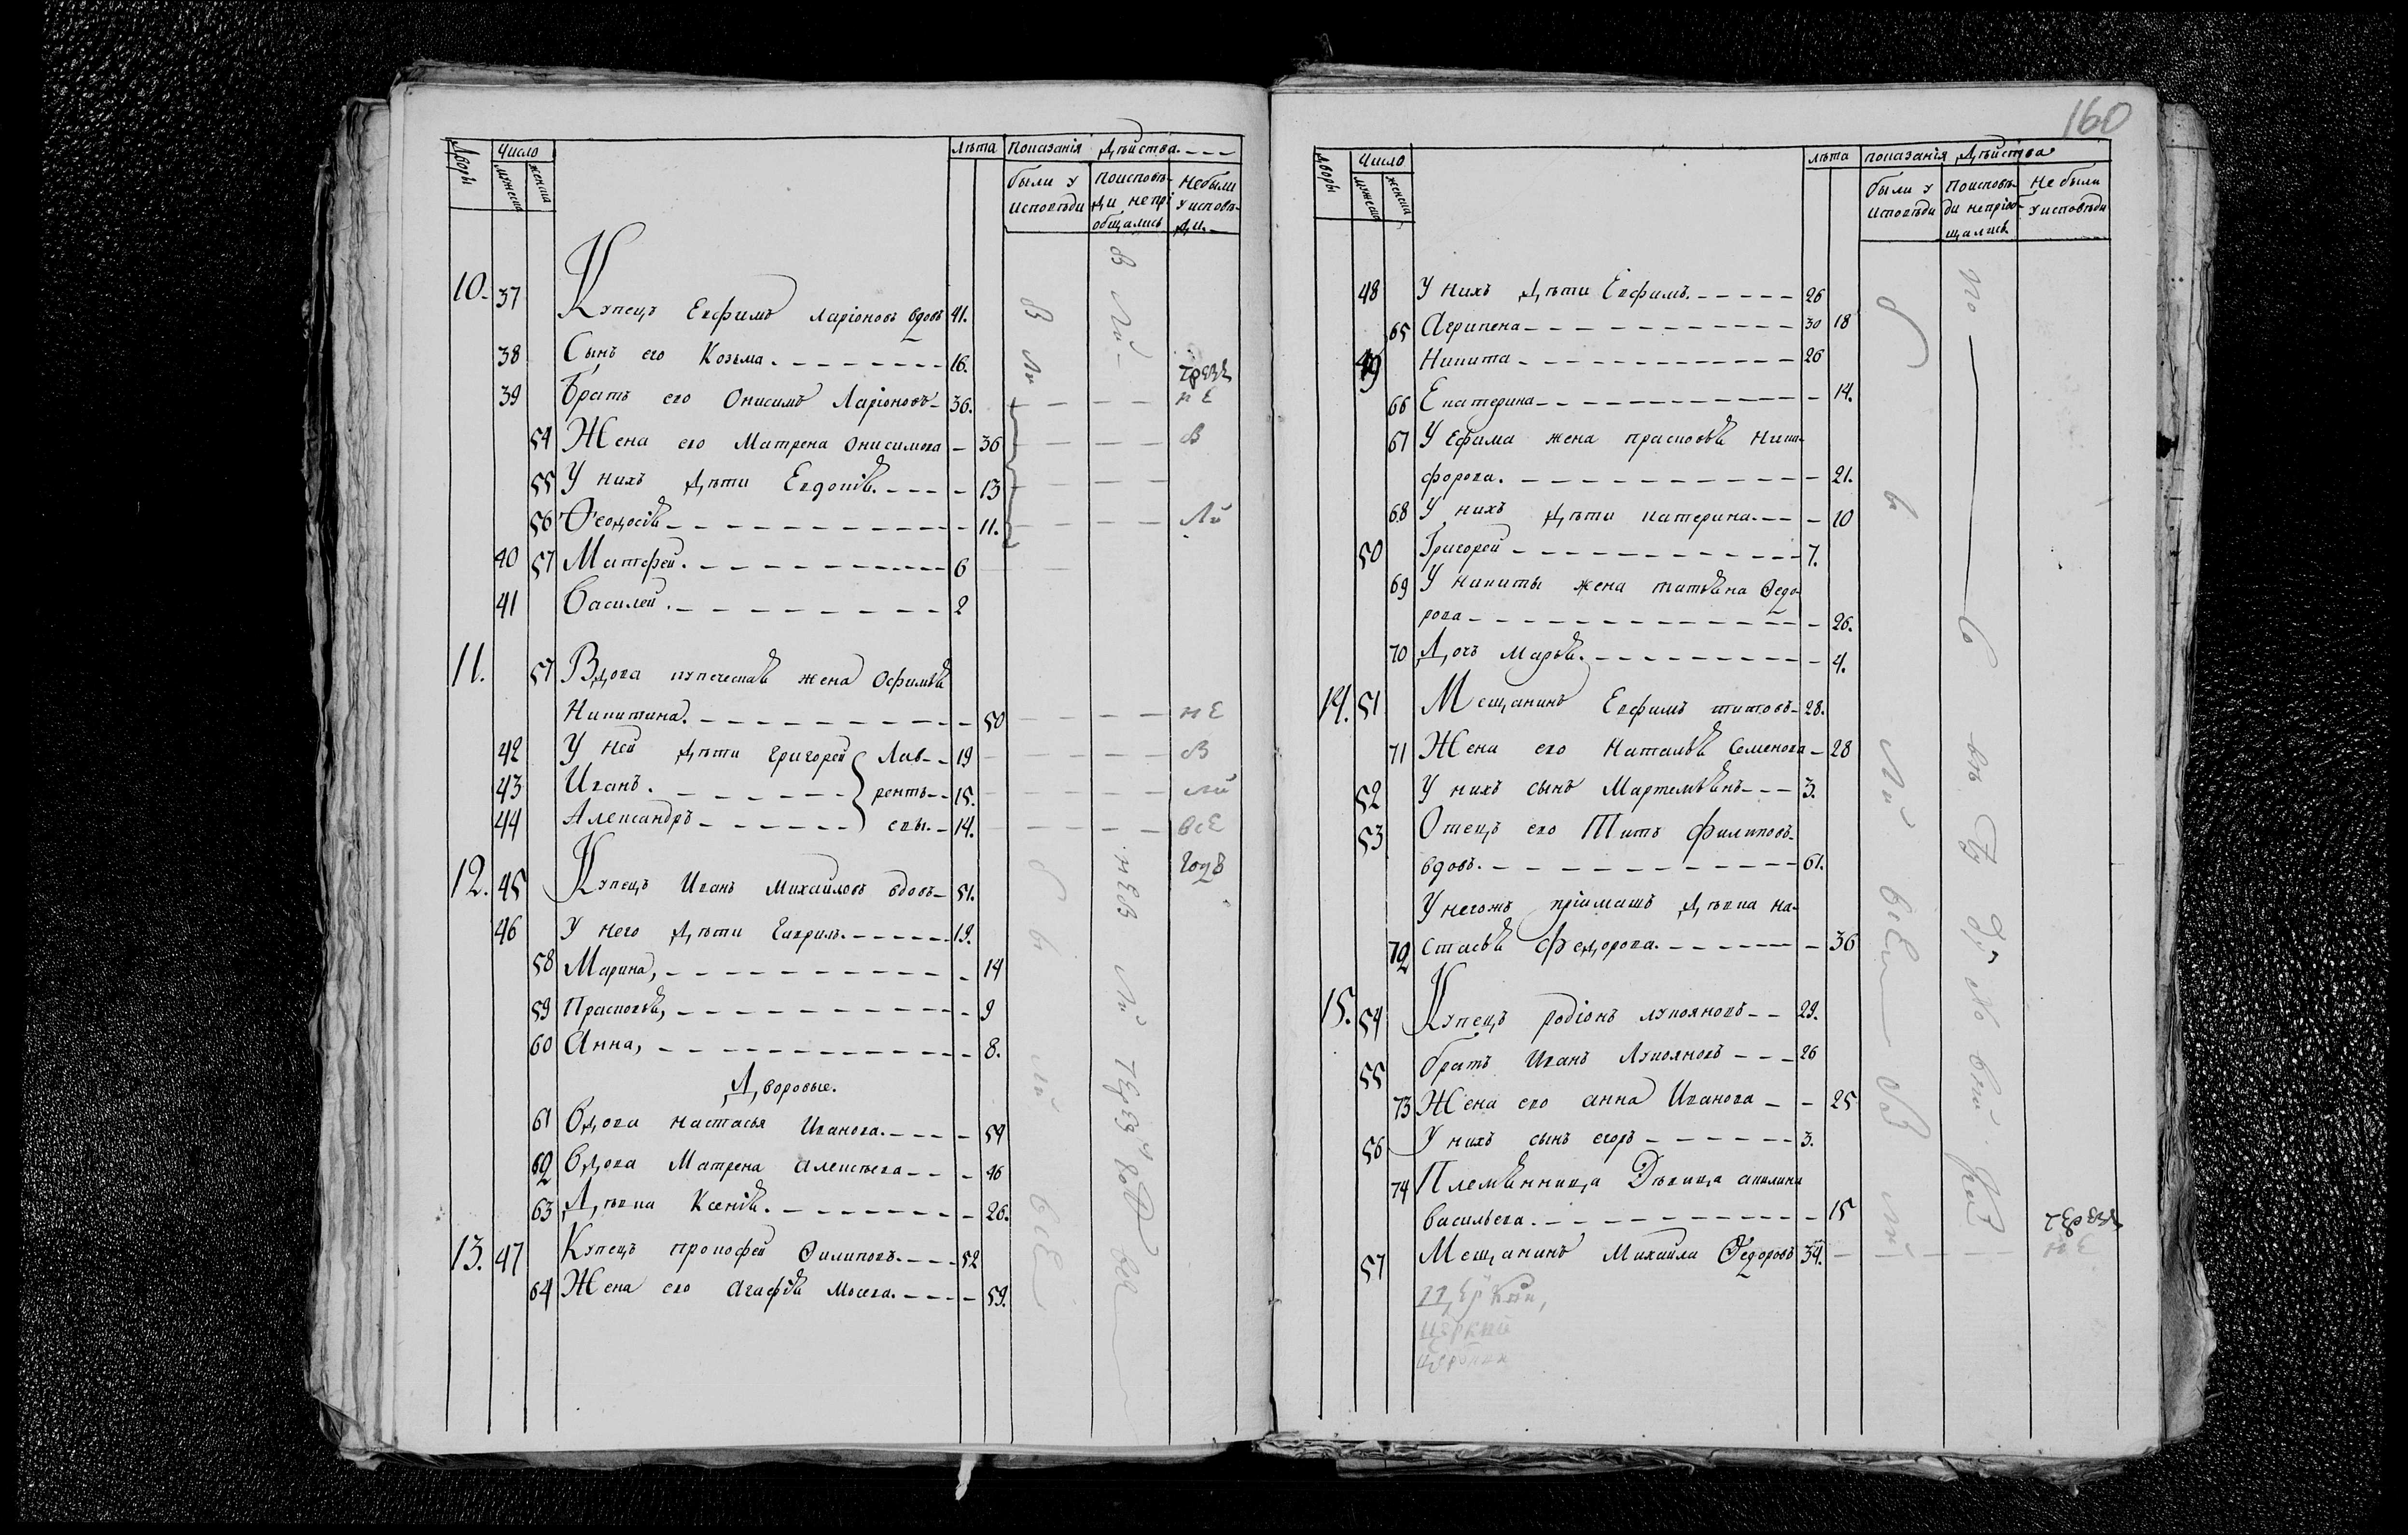 Дворы Число мужеска женска Лѣта Показанія Дѣйства.
были у исповѣди Поисповѣди непріобщались Небыли у исповѣди.
10. 37 Купецъ Евфимъ Ларіоновъ вдовъ 41.
38 Сынъ его Козьма. 16.
39 Братъ его Онисимъ Ларіоновъ 36.
54 Жена его Матрена Онисимова 36
55 У нихъ Дѣти Евдокія. 13
56 Ѳеодосія 11.
40 57 Матфей. 6
41 Василей. 2
11. 57 Вдова купеческая жена Офимья
Никитина. 50
42 У ней Дѣти Григорей Лав- 19
43 Иванъ. ренть- 15.
44 Александръ евы. 14.
12. 45 Купецъ Иванъ Михайловъ вдовъ 51.
46 У него Дѣти Гаврилъ. 19.
58 Марина, 14
59 Прасковья, 9
60 Анна, 8.
Дворовые.
61 Вдова Настасья Иванова. 59
62 Вдова Матрена Алексѣева 46
63 Дѣвка Ксенія. 26.
13. 47 Купецъ Прокофей Филиповъ. 52
64 Жена его Агафія Мосева. 59.
160
Дворы Число мужеска женска Лѣта показанія Дѣйства
были у исповѣди Поисповѣди непріобщались Не были у исповѣди
48 У нихъ Дѣти Евфимъ. 26
65 Агрипена 30 18
49 Никита 26
66 Екатерина 14.
67 У Ефима жена прасковья Ники-
форова. 21.
68 У нихъ Дѣти катерина. 10
50 Григорей 7.
69 У никиты жена татьяна Ѳедо-
рова 26.
70 Дочь Марья. 4.
14. 51 Мещанинъ Евфимъ титовъ 28.
71 Жена его Наталья Семенова 28
52 У нихъ сынъ Мартемьянъ 3.
53 Отецъ его Титъ Филиповъ
вдовъ. 61.
У негожъ пріимашъ Дѣвка На-
72 стасья Федорова. 36
15. 54 Купецъ родіонъ лукояновъ 29.
55 братъ Иванъ Лукояновъ 26
73 Жена его анна Иванова 25
56 У нихъ сынъ егоръ 3.
74 Племянница Дѣвица акилина
васильева. 15
57 Мещанинъ Михаила Ѳедоровъ 34.